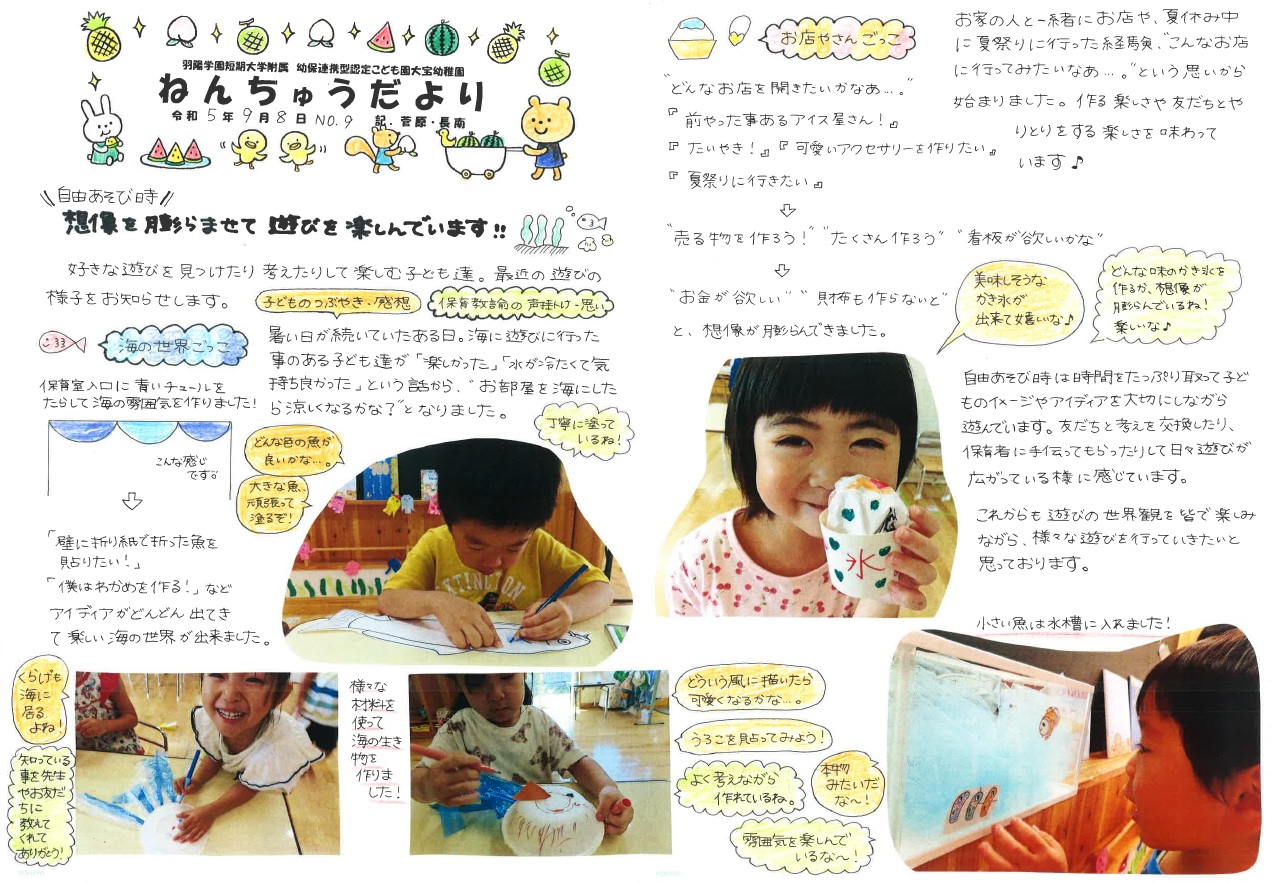 羽陽学園短期大学附属 幼保連携型認定こども園大宝幼稚園
ねんちゅうだより
令和5年9月8日 NO.9 記.菅原・長南
\\自由あそび時//
想像を膨らませて遊びを楽しんでいます!!
好きな遊びを見つけたり考えたりして楽しむ子ども達。最近の遊びの
様子をお知らせします。
子どものつぶやき・感想
保育教諭の声掛け・思い
海の世界ごっこ
保育室入口に青いチュールを
たらして海の雰囲気を作りました!
こんな感じ
です。
暑い日が続いていたある日。海に遊びに行った
事のある子ども達が「楽しかった」「水が冷たくて気
持ち良かった」という話から、"お部屋を海にした
ら涼しくなるかな?"となりました。
どんな色の魚が
良いかな…。
大きな魚、
頑張って
塗るぞ!
丁寧に塗って
いるね!
「壁に折り紙で折った魚を
貼りたい!」
「僕はわかめを作る!」など
アイディアがどんどん出てき
て楽しい海の世界が出来ました。
くらげも
海に
居る
よね!
知っている
事を先生
やお友だ
ちに
教えて
くれて
ありがとう!
様々な
材料を
使って
海の生き
物を
作りま
した!
どういう風に描いたら
可愛くなるかな…。
うろこを貼ってみよう!
よく考えながら
作れているね。
本物
みたいだ
な〜!
雰囲気を楽しんで
いるな〜!
お店やさんごっこ
"どんなお店を開きたいかなあ…。"
『前やった事あるアイス屋さん!』
『たいやき!』『可愛いアクセサリーを作りたい』
『夏祭りに行きたい』
お家の人と一緒にお店や、夏休み中
に夏祭りに行った経験、"こんなお店
に行ってみたいなあ…。"という思いから
始まりました。作る楽しさや友だちとや
りとりをする楽しさを味わって
います♪
"売る物を作ろう!" "たくさん作ろう" "看板が欲しいかな"
"お金が欲しい" "財布も作らないと"
と、想像が膨らんできました。
美味しそうな
かき氷が
出来て嬉しいな♪
どんな味のかき氷を
作るか、想像が
膨らんでいるね!
楽しいな♪
氷
自由あそび時は時間をたっぷり取って子ど
ものイメージやアイディアを大切にしながら
遊んでいます。友だちと考えを交換したり、
保育者に手伝ってもらったりして日々遊びが
広がっている様に感じています。
これからも遊びの世界観を皆で楽しみ
ながら、様々な遊びを行っていきたいと
思っております。
小さい魚は水槽に入れました!